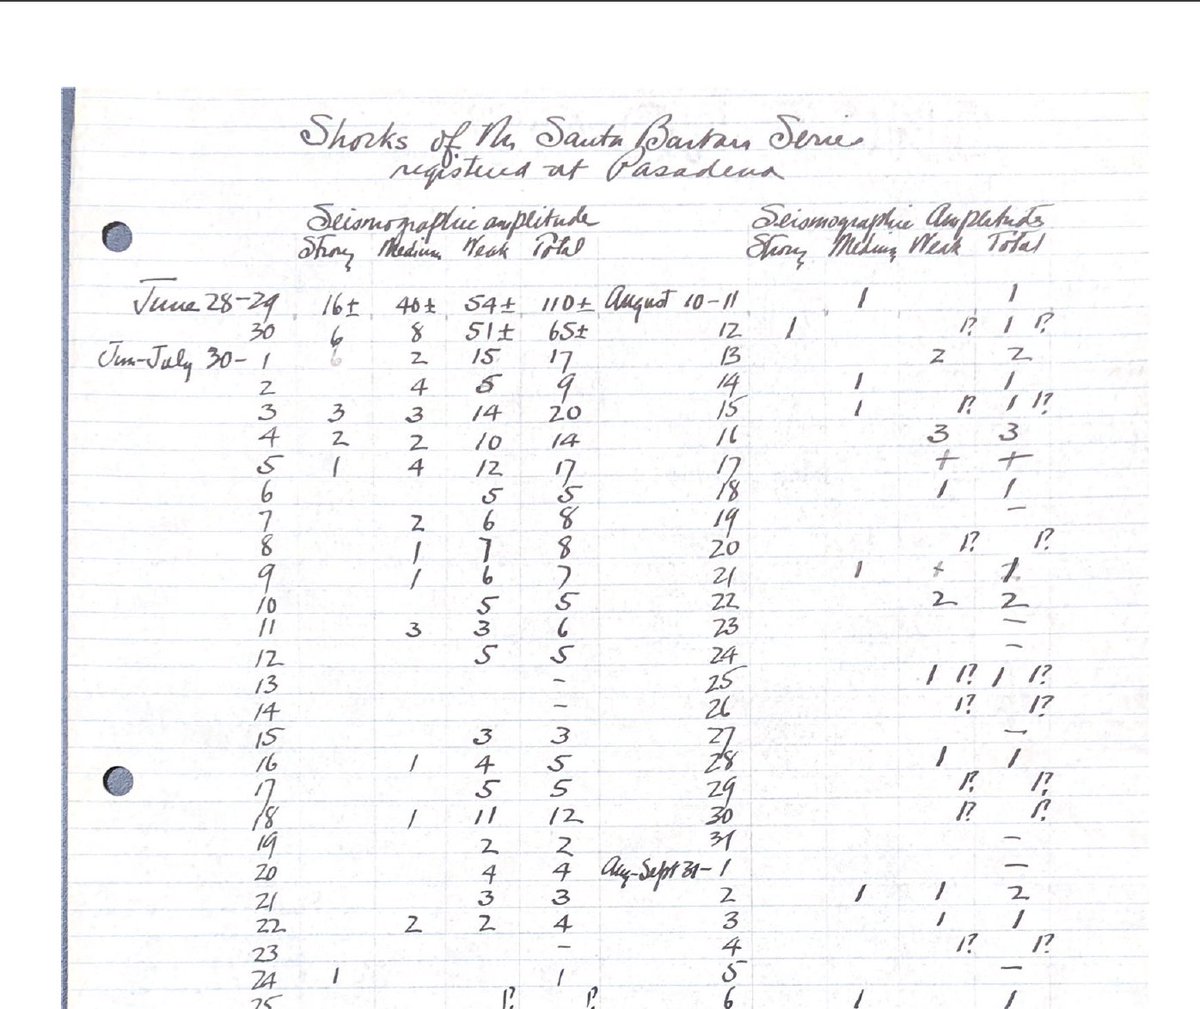 Shocks of the Santa Barbara Series
registered at Pasadena
Seismographic amplitude Seismographic Amplitude
Strong Medium Weak Total Strong Medium Weak Total
June 28-29 16± 40± 54± 110± August 10-11 1 1
30 6 8 51± 65± 12 1 1? 1 1?
Jun-July 30-1 6 2 15 17 13 2 2
2 4 5 9 14 1 1
3 3 3 14 20 15 1 1? 1 1?
4 2 2 10 14 16 3 3
5 1 4 12 17 17 + +
6 5 5 18 1 1
7 2 6 8 19 -
8 1 7 8 20 1? 1?
9 1 6 7 21 1 + 1
10 5 5 22 2 2
11 3 3 6 23 -
12 5 5 24 -
13 - 25 1 1? 1 1?
14 - 26 1? 1?
15 3 3 27 -
16 1 4 5 28 1 1
17 5 5 29 1? 1?
18 1 11 12 30 1? 1?
19 2 2 31 -
20 4 4 Aug-Sept 31-1 -
21 3 3 2 1 1 2
22 2 2 4 3 1 1
23 - 4 1? 1?
24 1 1 5 -
25 1? 1? 6 1 1